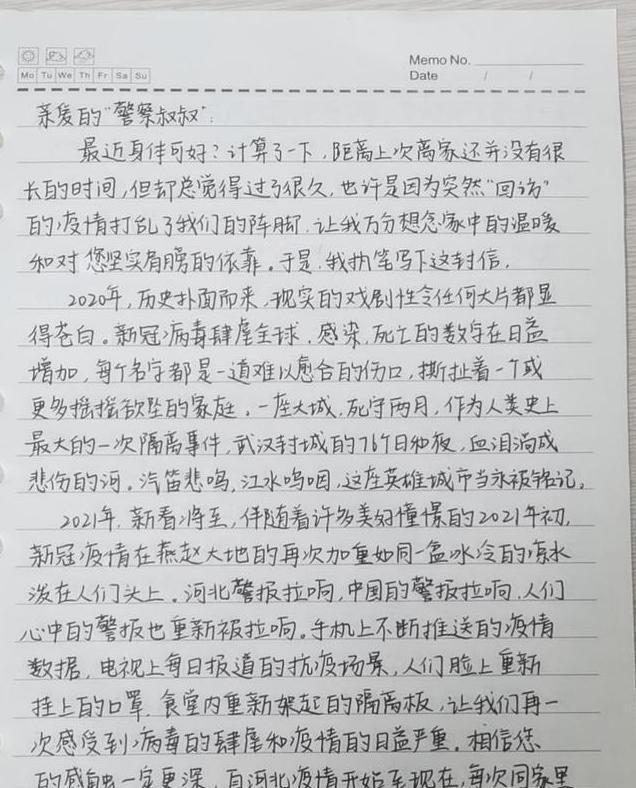 Memo No.
Mo Tu We Th Fr Sa Su
Date / /
亲爱的"警察叔叔":
最近身体可好？计算了一下，距离上次离家还并没有很
长的时间，但却总觉得过了很久，也许是因为突然"回访"
的疫情打乱了我们的阵脚，让我万分想念家中的温暖
和对您坚实肩膀的依靠。于是，我执笔写下这封信。
2020年，历史扑面而来，现实的戏剧性令任何大片都显
得苍白。新冠病毒肆虐全球，感染，死亡的数字在日益
增加，每个名字都是一道难以愈合的伤口，撕扯着一个或
更多摇摇欲坠的家庭。一座大城，死守两月，作为人类史上
最大的一次隔离事件，武汉封城的76个日和夜，血泪淌成
悲伤的河。汽笛悲鸣，江水呜咽，这座英雄城市当永被铭记。
2021年，新春将至，伴随着许多美好憧憬的2021年初，
新冠疫情在燕赵大地的再次加重如同一盆冰冷的凉水
泼在人们头上。河北警报拉响，中国的警报拉响，人们
心中的警报也重新被拉响。手机上不断推送的疫情
数据，电视上每日报道的抗疫场景，人们脸上重新
挂上的口罩，食堂内重新架起的隔离板，让我们再一
次感受到病毒的肆虐和疫情的日益严重。相信您
的感触一定更深，自河北疫情开始至现在，每次回家里